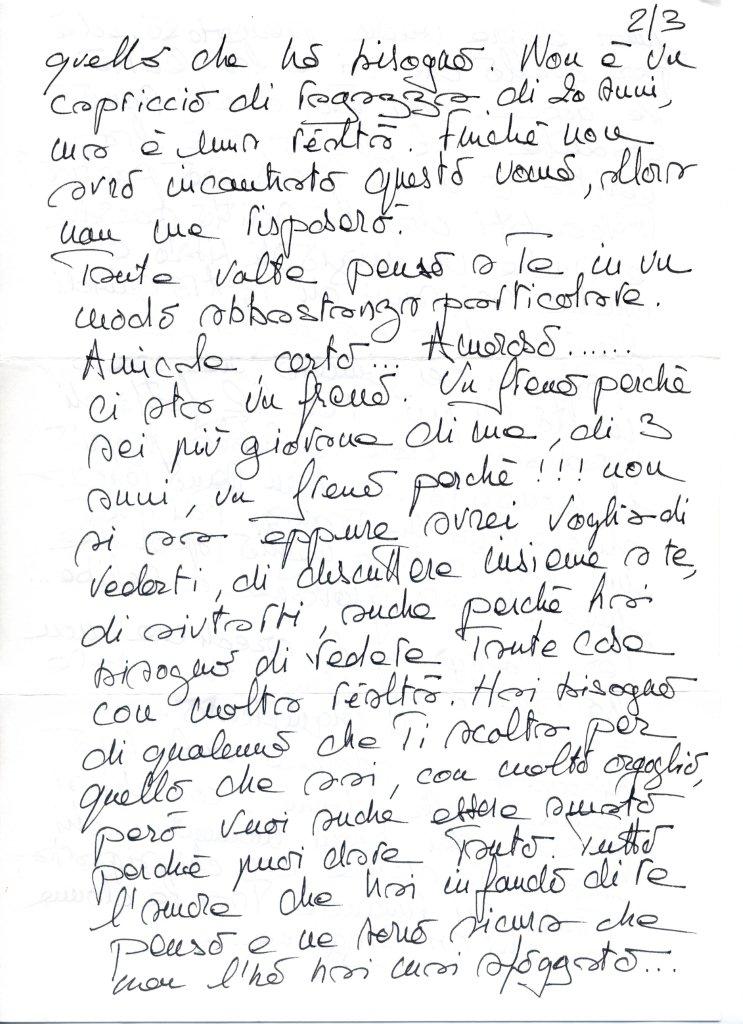 2/3
quello che ho bisogno. Non è un
capriccio di ragazza di 20 anni,
ma è una realtà. Finchè non
avrò incontrato questo uomo, allora
non me risposerò.
Tante volte penso a Te in un
modo abbastanza particolare.
Amicale, certo... Amoroso......
ci sta un freno. Un freno perchè
sei più giovane di me, di 3
anni, un freno perchè!!! non
si sa eppure avrei voglia di
vederti, di discuttere insieme a te,
di aiutarti, anche perchè hai
bisogno di vedere Tante cose
con molta realtà. Hai bisogno
di qualcuno che Ti scolta per
quello che sai, con molto orgoglio,
però vuoi anche essere amato
perchè puoi dare Tanto. Tutto
l'amore che hai in fondo di te
penso e ne sono sicura che
non l'hò hai mai sfoggato...